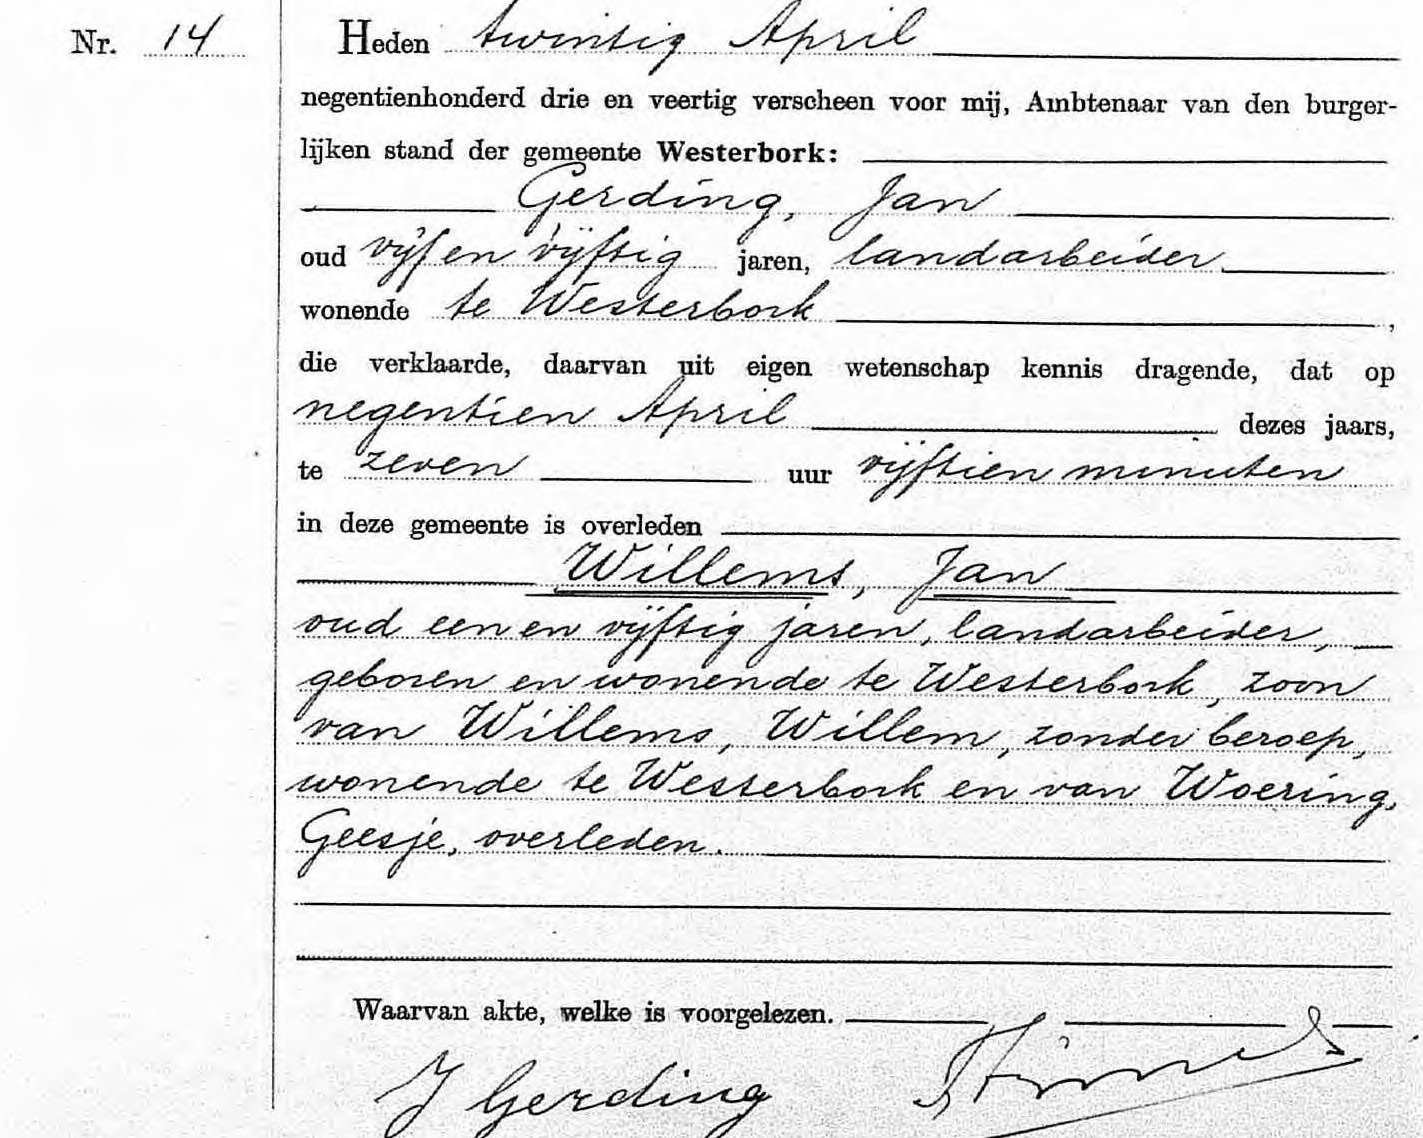 Nr. 14
Heden twintig April
negentienhonderd drie en veertig verscheen voor mij, Ambtenaar van den burger-
lijken stand der gemeente Westerbork:
Gerding, Jan
oud vijf en vijftig jaren, landarbeider
wonende te Westerbork,
die verklaarde, daarvan uit eigen wetenschap kennis dragende, dat op
negentien April dezes jaars,
te zeven uur vijftien minuten
in deze gemeente is overleden
Willems, Jan
oud een en vijftig jaren, landarbeider,
geboren en wonende te Westerbork, zoon
van Willems, Willem, zonder beroep,
wonende te Westerbork en van Woering,
Geesje, overleden.
Waarvan akte, welke is voorgelezen.
J Gerding